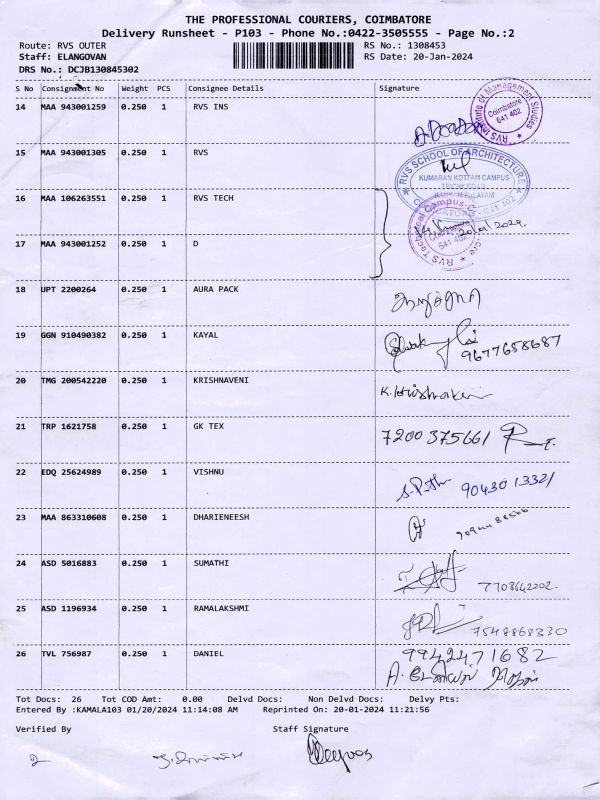 THE PROFESSIONAL COURIERS, COIMBATORE
Delivery Runsheet - P103 - Phone No.:0422-3505555 - Page No.:2
Route: RVS OUTER RS No.: 1308453
Staff: ELANGOVAN RS Date: 20-Jan-2024
DRS No.: DCJB130845302
S No Consignment No Weight PCS Consignee Details Signature
14 MAA 943001259 0.250 1 RVS INS
RVS Institute of Management Studies
Coimbatore
641 402
15 MAA 943001305 0.250 1 RVS
RVS SCHOOL OF ARCHITECTURE
KUMARAN KOTTAM CAMPUS
TRICHY ROAD
COIMBATORE - 641 402
16 MAA 106263551 0.250 1 RVS TECH
RVS Technical Campus
641 402
17 MAA 943001252 0.250 1 D
18 UPT 2200264 0.250 1 AURA PACK
19 GGN 910490382 0.250 1 KAYAL
9677658687
20 TMG 200542220 0.250 1 KRISHNAVENI
21 TRP 1621758 0.250 1 GK TEX 7200375661
22 EDQ 25624989 0.250 1 VISHNU 9043013321
23 MAA 863310608 0.250 1 DHARIENEESH
24 ASD 5016883 0.250 1 SUMATHI
7708642202.
25 ASD 1196934 0.250 1 RAMALAKSHMI
7548868330
26 TVL 756987 0.250 1 DANIEL 9942471682
Tot Docs: 26 Tot COD Amt: 0.00 Delvd Docs: Non Delvd Docs: Delvy Pts:
Entered By :KAMALA103 01/20/2024 11:14:08 AM Reprinted On: 20-01-2024 11:21:56
Verified By Staff Signature